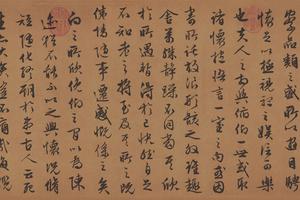 品類之盛所以遊目騁
懷足以極視聽之娛信可樂
也夫人之相與俯仰一世或取
諸懷抱悟言一室之內或因
寄所託放浪形骸之外雖趣
舍萬殊靜躁不同當其欣
於所遇暫得於己快然自足
不知老之將至及其所之既
倦情隨事遷感慨係之矣
向之所欣俛仰之間以為陳
迹猶不能不以之興懷況脩
短隨化終期於盡古人云死
生亦大矣豈不痛哉每